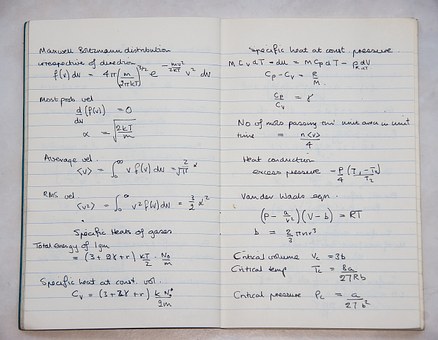 Maxwell Boltzmann distribution
irrespective of direction
f(v) dv = 4π (m/2πkT)^3/2 e^-mv²/2kT v² dv
Most prob vel
d/dv (f(v)) = 0
α = √(2kT/m)
Average vel.
<v> = ∫₀^∞ v f(v) dv = 2/√π α
RMS vel
<v²> = ∫₀^∞ v² f(v) dv = 3/2 α²
Specific Heats of gases
Total energy of 1gm
= (3 + 2γ + r) kT/2 N₀/m
Specific heat at const. vol.
Cv = (3 + 2γ + r) k N₀/2m
Specific heat at const pressure
M Cv dT = du = M Cp dT - p dV
Cp - Cv = R/M
Cp/Cv = γ
No of mols passing thro' unit area in unit
time = n<v>/4
Heat conduction
excess pressure
Van der Waals eqn.
(P - a/v²)(V - b) = RT
b = 2/3 πnr³
Critical volume Vc = 3b
Critical temp Tc = 8a/27Rb
Critical pressure Pc = a/27b²